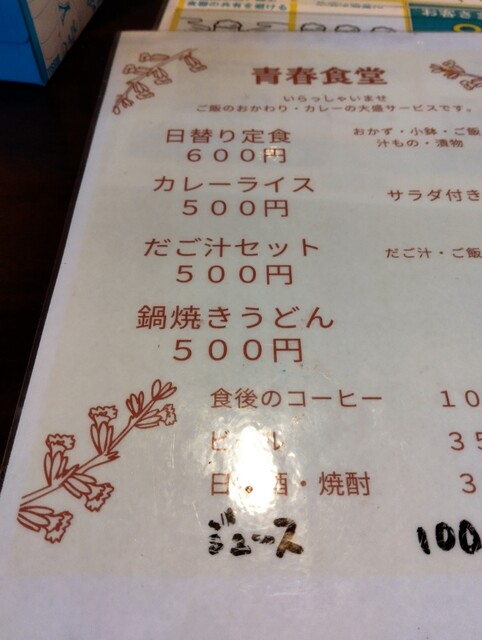 食器の共有を避ける
青春食堂
いらっしゃいませ
ご飯のおかわり・カレーの大盛サービスです。
日替り定食
おかず・小鉢・ご飯
６００円
汁もの・漬物
カレーライス
サラダ付き
５００円
だご汁セット
だご汁・ご飯
５００円
鍋焼きうどん
５００円
食後のコーヒー 10
ビール 35
日本酒・焼酎 3
ジュース 100